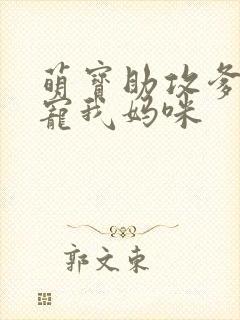 萌寶助攻爹
寵我媽咪
郭文東